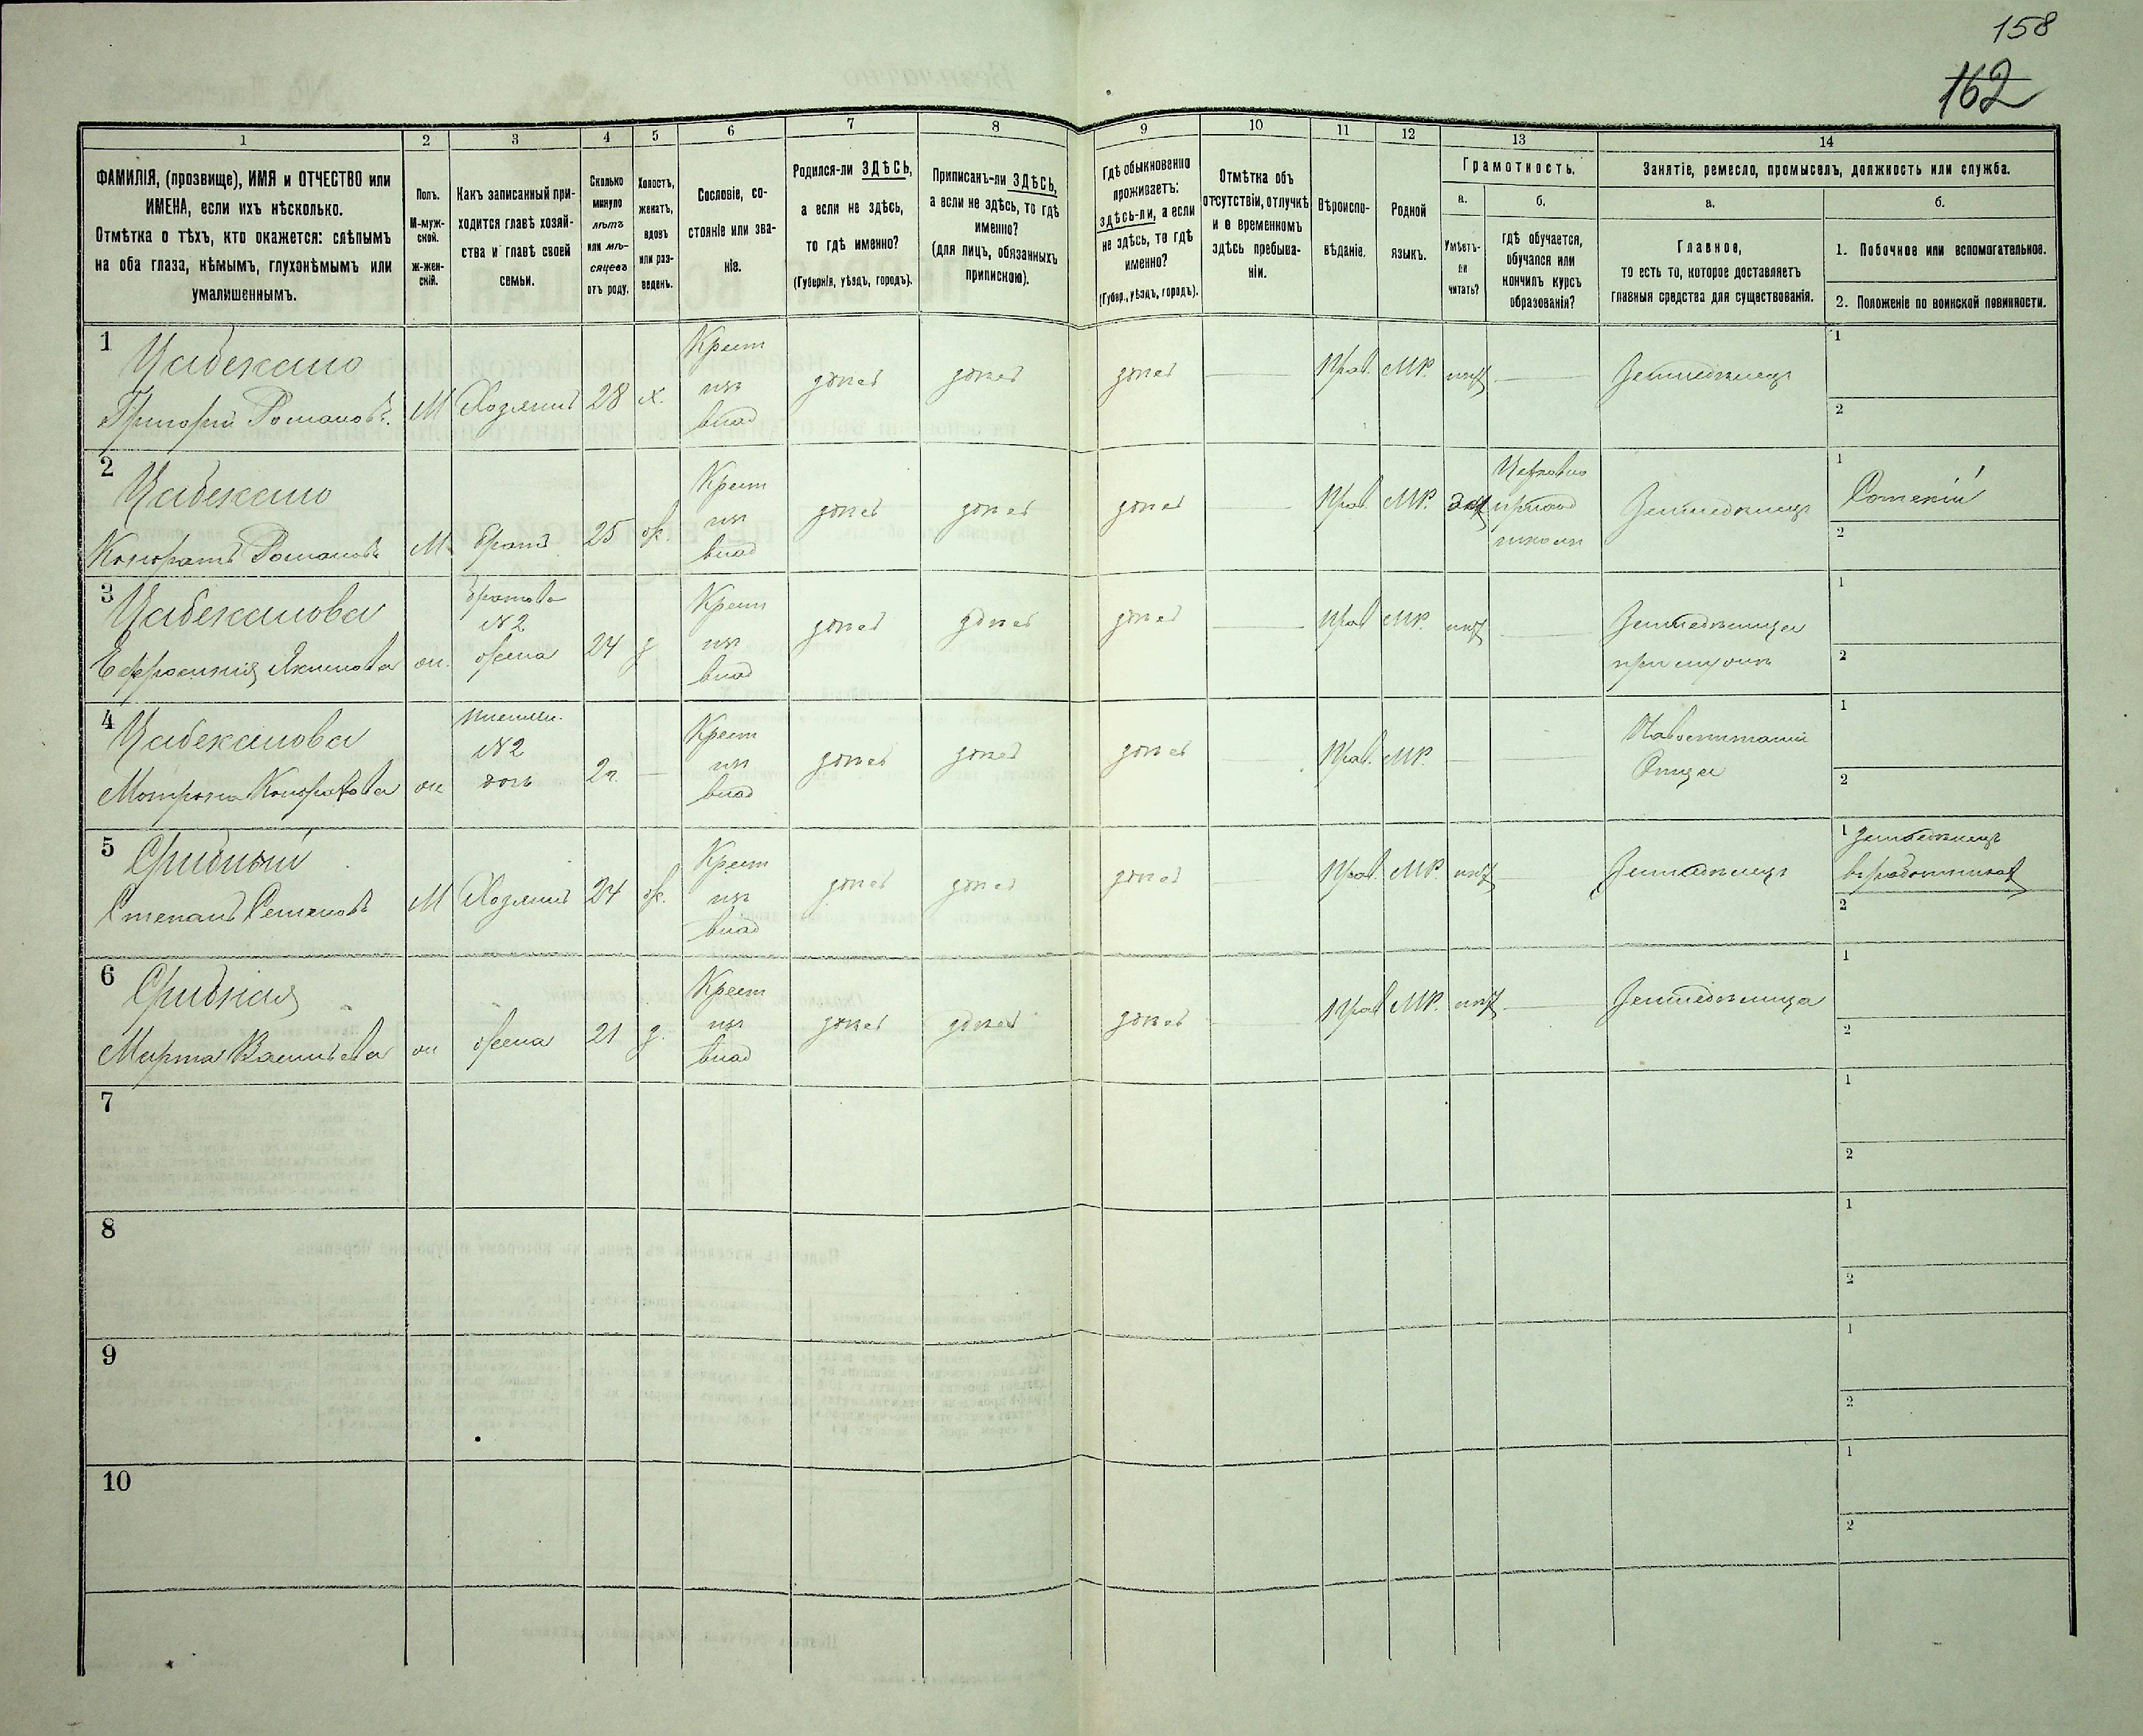 158
162
1
2
3
4
5
6
7
8
9
10
11
12
13
14
ФАМИЛІЯ, (прозвище), ИМЯ и ОТЧЕСТВО или
ИМЕНА, если ихъ нѣсколько.
Отмѣтка о тѣхъ, кто окажется: слѣпымъ
на оба глаза, нѣмымъ, глухонѣмымъ или
умалишеннымъ.
Полъ.
М-муж-
ской.
ж-жен-
скій.
Какъ записанный при-
ходится главѣ хозяй-
ства и главѣ своей
семьи.
Сколько
минуло
лѣтъ
или мѣ-
сяцевъ
отъ роду.
Холостъ,
женатъ,
вдовъ
или раз-
веденъ.
Сословіе, со-
стояніе или зва-
ніе.
Родился-ли ЗДѢСЬ,
а если не здѣсь,
то гдѣ именно?
(Губернія, уѣздъ, городъ).
Приписанъ-ли ЗДѢСЬ,
а если не здѣсь, то гдѣ
именно?
(для лицъ, обязанныхъ
припискою).
Гдѣ обыкновенно
проживаетъ:
здѣсь-ли, а если
не здѣсь, то гдѣ
именно?
(Губер., уѣздъ, городъ).
Отмѣтка объ
отсутствіи, отлучкѣ
и о временномъ
здѣсь пребыва-
ніи.
Вѣроиспо-
вѣданіе.
Родной
языкъ.
Грамотность.
а.
Умѣетъ-
ли
читать?
б.
гдѣ обучается,
обучался или
кончилъ курсъ
образованія?
Занятіе, ремесло, промыселъ, должность или служба.
а.
Главное,
то есть то, которое доставляетъ
главныя средства для существованія.
б.
1. Побочное или вспомогательное.
2. Положеніе по воинской повинности.
1
Григорій Романовъ
М
Хозяинъ
28
х.
Крест
изъ
влад
здѣсь
здѣсь
здѣсь
Прав.
МР.
нѣтъ
Земледѣлецъ
1
2
2
Романовъ
М
братъ
25
ж.
Крест
изъ
влад
здѣсь
здѣсь
здѣсь
Прав.
МР.
да
Церковно
приход
школи
Земледѣлецъ
1
Сотскій
2
3
Якимова
ж.
N2
жена
24
з
Крест
изъ
влад
здѣсь
здѣсь
здѣсь
Прав
МР.
нѣтъ
Земледѣлица
при мужѣ
1
2
4
Мотрона
ж
N2
дочь
2г.
Крест
изъ
влад
здѣсь
здѣсь
здѣсь
Прав.
МР.
Отца
1
2
5
Степанъ
М
Хозяинъ
24
ж.
Крест
изъ
влад
здѣсь
здѣсь
здѣсь
Прав.
МР.
нѣтъ
Земледѣлецъ
1
Земледѣлецъ
2
6
Марта Васильева
ж
жена
21
з.
Крест
изъ
влад
здѣсь
здѣсь
здѣсь
Прав
МР.
нѣтъ
Земледѣлица
1
2
7
1
2
8
1
2
9
1
2
10
1
2